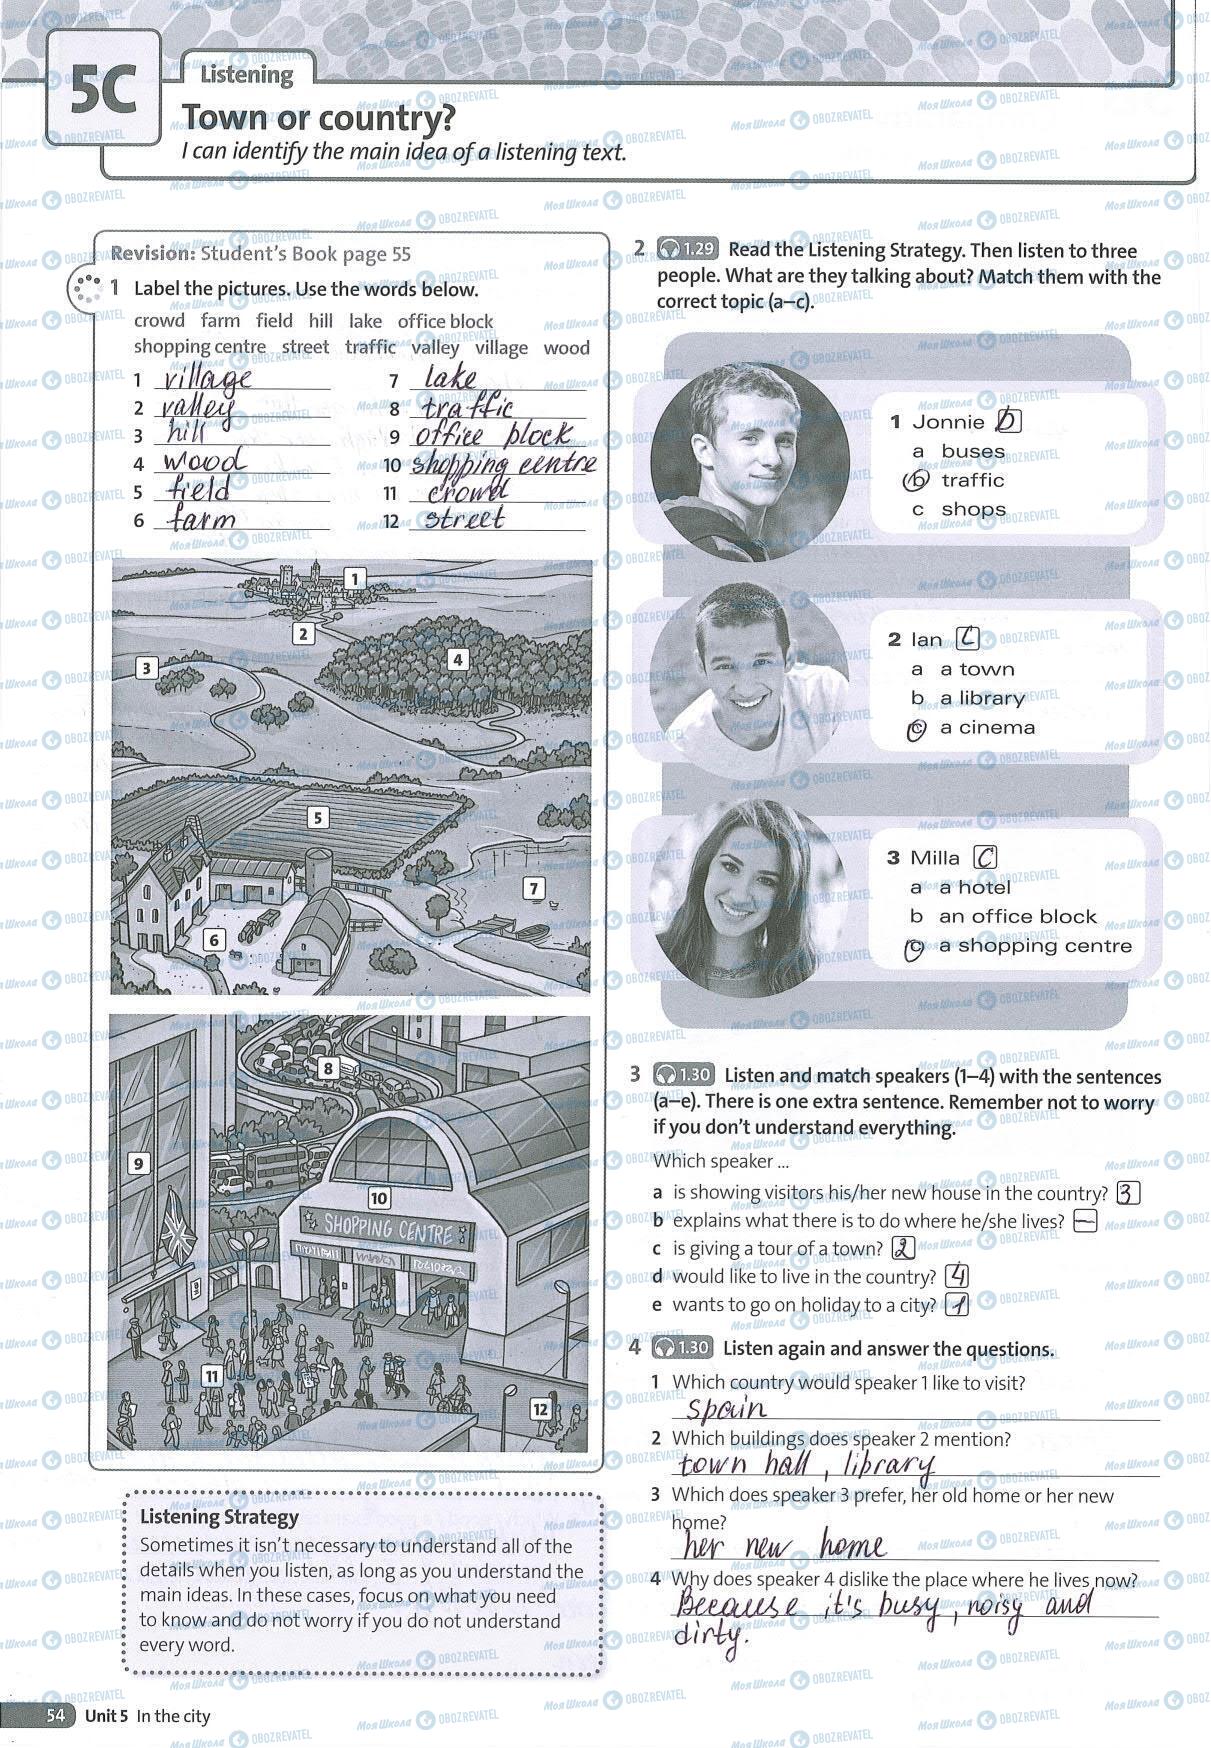 5C
Listening
Town or country?
I can identify the main idea of a listening text.
Revision: Student's Book page 55
1 Label the pictures. Use the words below.
crowd farm field hill lake office block
shopping centre street traffic valley village wood
1 village
2 valley
3 hill
4 wood
5 field
6 farm
7 lake
8 traffic
9 office block
10 shopping centre
11 crowd
12 street
1
2
3
4
5
6
7
8
9
10
SHOPPING CENTRE
11
12
Listening Strategy
Sometimes it isn't necessary to understand all of the
details when you listen, as long as you understand the
main ideas. In these cases, focus on what you need
to know and do not worry if you do not understand
every word.
2 1.29 Read the Listening Strategy. Then listen to three
people. What are they talking about? Match them with the
correct topic (a–c).
1 Jonnie b
a buses
b traffic
c shops
2 Ian c
a a town
b a library
c a cinema
3 Milla c
a a hotel
b an office block
c a shopping centre
3 1.30 Listen and match speakers (1–4) with the sentences
(a–e). There is one extra sentence. Remember not to worry
if you don't understand everything.
Which speaker ...
a is showing visitors his/her new house in the country? 3
b explains what there is to do where he/she lives? —
c is giving a tour of a town? 2
d would like to live in the country? 4
e wants to go on holiday to a city? 1
4 1.30 Listen again and answer the questions.
1 Which country would speaker 1 like to visit?
Spain
2 Which buildings does speaker 2 mention?
town hall, library
3 Which does speaker 3 prefer, her old home or her new
home?
her new home
4 Why does speaker 4 dislike the place where he lives now?
Because it's busy, noisy and
dirty.
54 Unit 5 In the city
Моя Школа OBOZREVATEL